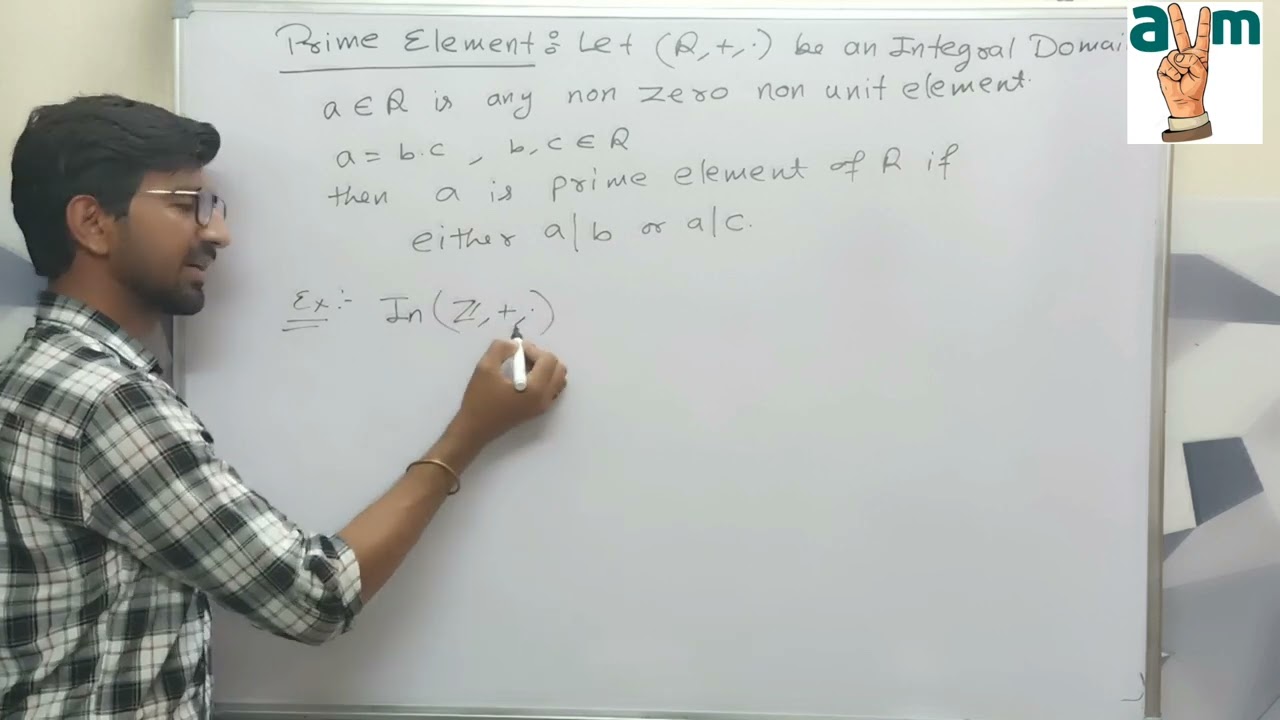 Prime Element : Let (R, +, ·) be an Integral Domai
a ∈ R is any non zero non unit element.
a = b.c , b, c ∈ R
then a is prime element of R if
either a|b or a|c.
Ex :- In (Z, +, ·)
avm